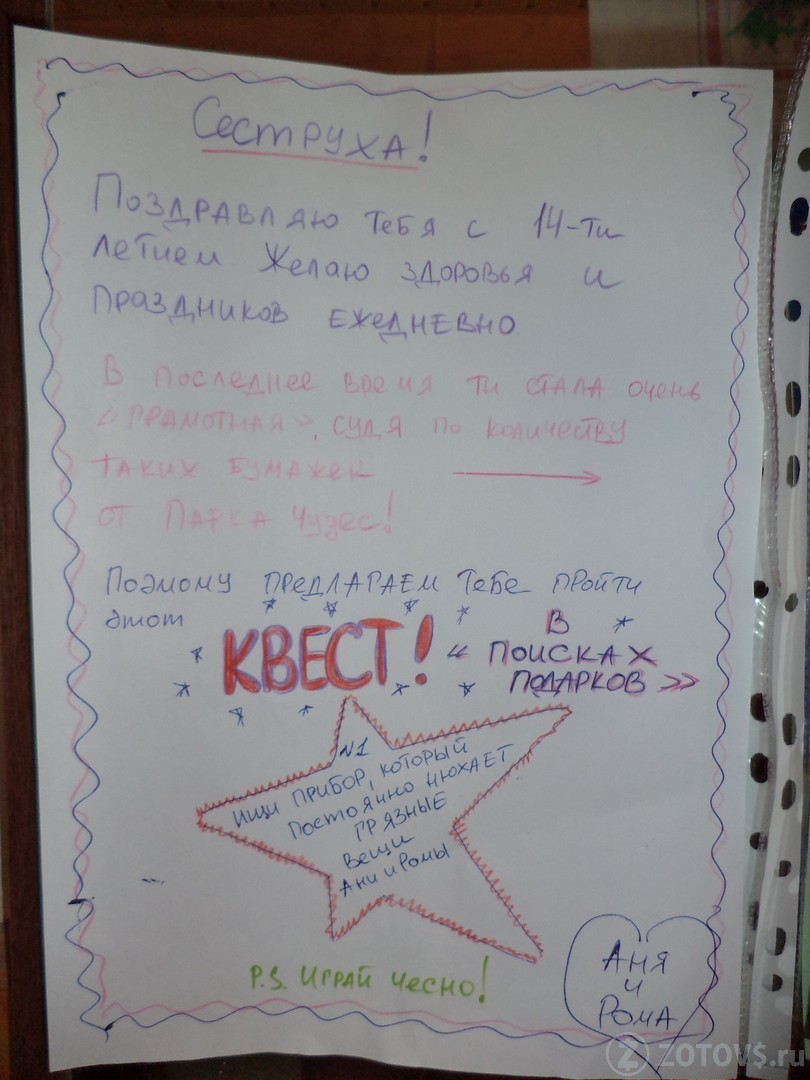 Сеструха!
Поздравляю тебя с 14-ти
летием. Желаю здоровья и
праздников ежедневно
В последнее время ти стала очень
«грамотная», судя по количеству
таких бумажек
от Парка Чудес!
Поэтому предлагаем тебе пройти
этот
КВЕСТ! « В
ПОИСКАХ
ПОДАРКОВ »
N1
ищи прибор, который
постоянно нюхает
грязные
вещи
Ани и Ромы
P.S. Играй чесно!
Аня
и
Рома
ZOTOV$.ru